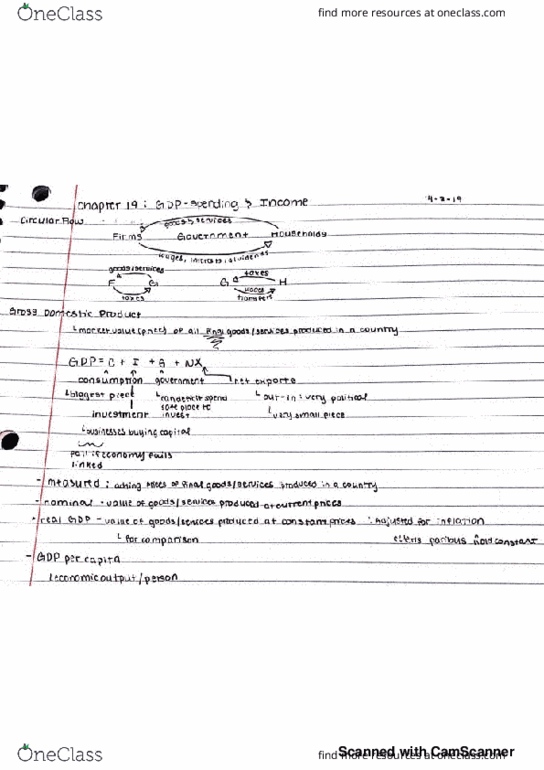 OneClass find more resources at oneclass.com
Chapter 19 : GDP - Spending & Income 4-2-19
Circular Flow
goods/services
Firms Government Households
wages, interest, dividends
goods/services taxes
F G G H
taxes transfers
Gross Domestic Product
market value (price) of all final goods/services produced in a country
GDP = C + I + G + NX
consumption government net exports
biggest piece out-in : very political
investment invest very small piece
businesses buying capital
economy
linked
- measured : adding prices of final goods/services produced in a country
- nominal - value of goods/services produced at current prices
- real GDP - value of goods/services produced at constant prices : adjusted for inflation
for comparison ceteris paribus hold constant
- GDP per capita
economic output/person
Scanned with CamScanner
OneClass find more resources at oneclass.com